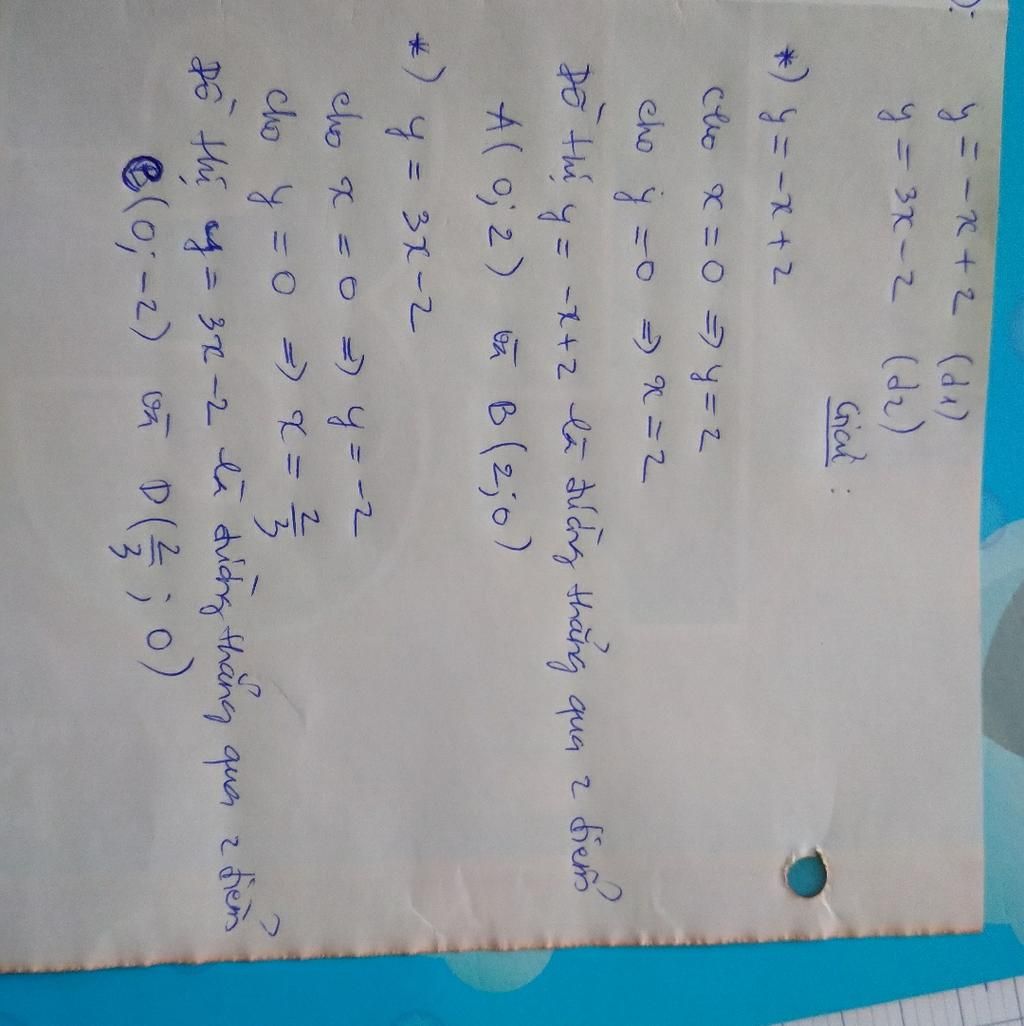 ):
y = -x + 2 (d1)
y = 3x - 2 (d2)
Giải:
*) y = -x + 2
cho x = 0 ⇒ y = 2
cho y = 0 ⇒ x = 2
Đồ thị y = -x+2 là đường thẳng qua 2 điểm
A(0; 2) và B(2; 0)
*) y = 3x - 2
cho x = 0 ⇒ y = -2
cho y = 0 ⇒ x = 2/3
Đồ thị y = 3x - 2 là đường thẳng qua 2 điểm
C(0; -2) và D(2/3; 0)